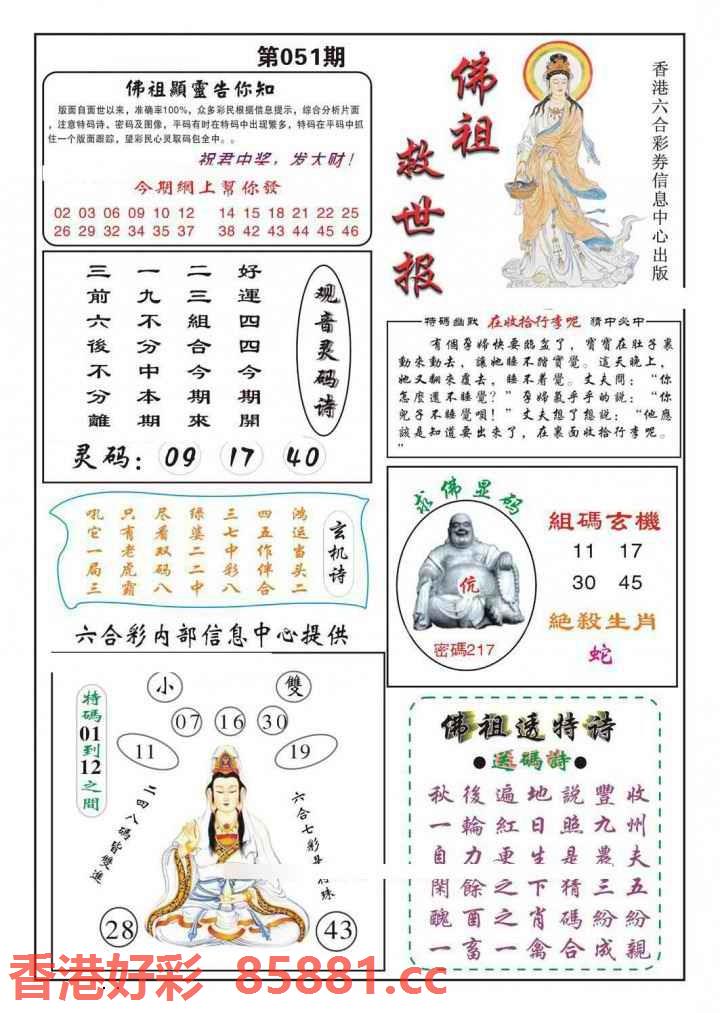 第051期
佛祖顯靈告你知
版面自面世以来，准确率100%，众多彩民根据信息提示，综合分析片面
，注意特码诗、密码及图像，平码有时在特码中出现繁多，特码在平码中抓
住一个版面跟踪，望彩民心灵取码包全中。。
祝君中奖，发大财！
今期網上幫你發
02 03 06 09 10 12 14 15 18 21 22 25
26 29 32 34 35 37 38 42 43 44 45 46
佛祖救世报
香港六合彩券信息中心出版
观音灵码诗
好運四四今期開
二三組合今期來
一九不分中本期
三前六後不分離
灵码：09 17 40
特碼幽默 在收拾行李呢 猜中必中
有個孕婦快要臨盆了，寶寶在肚子裏
動來動去，讓她睡不踏實覺。這天晚上，
她又翻來覆去，睡不着覺。丈夫問：“你
怎麼還不睡覺？”孕婦氣乎乎的説：“你
兒子不睡覺唄！”丈夫想了想説：“他應
該是知道要出來了，在裏面收拾行李呢。
”
玄机诗
鸿运当头二
四五作伴合
三七中彩八
绿婆二二中
尽看双码八
只有老虎霸
吼它一局三
六合彩内部信息中心提供
求佛显码
伉
密碼217
組碼玄機
11 17
30 45
絶殺生肖
蛇
特碼01到12之間
小 雙
07 16 30
11 19
二四八碼皆雙進
六合七彩
殊
28 43
佛祖透特诗
●送碼詩●
秋後遍地説豐收
一輪紅日照九州
自力更生是農夫
閑餘之下猜三五
醜酉之肖碼紛紛
一畜一禽合成親
香港好彩 85881.cc